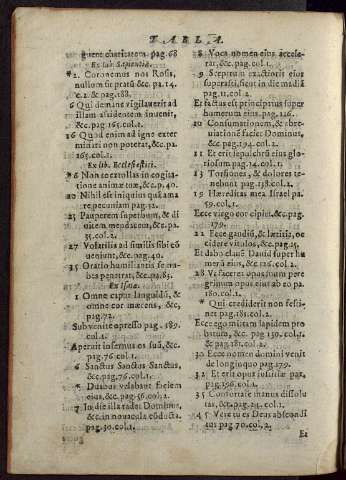 TABLA.
guent charitatem. pag. 68
Ex lib. Sapientiæ.
*2. Coronemus nos Rosis,
nullum sit pratū &c. pa. 14.
c. 2. & pag. 188.
6 Qui de mane vigilauerit ad
illam assidentem inueniet,
&c. pag. 165. col. 1.
16 Quod enim ad igne exter
minari non poterat, &c. pa.
165. col. 1.
Ex lib. Ecclesiastici.
*6 Non te extollas in cogita
tione animæ tuæ, &c. p. 40.
10 Nihil est iniquius quā ama
re pecuniam pag. 12.
25 Pauperem superbum, & di
uitem mendacem, &c. pa.
35. col. 2.
27 Volatilia ad similia sibi cō
ueniunt, &c. pag. 40.
35 Oratio humiliantis se nu-
bes penetrat, &c. pa. 85.
Ex Isaiæ.
1 Omne caput languidū, &
omne cor mœrens, &c.
pag. 72.
Subuenite opresso pag. 189.
col. 1.
Aperuit infernus os suū, &c.
pag. 76. col. 1.
6 Sanctus Sanctus Sanctus,
&c. pag. 156. col. 1.
* Duabus velabant faciem
eius, &c. pag. 56. col. 2.
7 In die illa radet Dominus,
&c. in nouacula cōducta.
pag. 30. col. 1.
8 Voca nomen eius accele-
rat, &c. pag. col. 1.
9 Sceptrum exactoris eius
superasti, sicut in die madiā
pag. 11. col. 2.
Et factus est principatus super
humerum eius. pag. 126.
10 Consumationem, & abre-
uiationē faciet Dominus,
&c. pag. 194. col. 2.
11 Et erit sepulchrū eius glo-
riosum pag. 14. col. 1.
13 Torsiones, & dolores te-
nebunt pag. 158. col. 1.
19 Hæreditas mea Israel pa.
59. col. 1.
Ecce virgo concipiet, &c. pag.
179.
22 Ecce gaudiū, & lætitia, oc
cidere vitulos, &c. pag. 25.
Et dabo clauē Dauid super hu
merū eius, &c. 126. col. 2.
28 Vt faceret opus suum pere
grinum opus eius ab eo pa.
180. col. 1.
* Qui crediderit non festi-
net pag. 181. col. 2.
Ecce ego mittam lapidem pro
batum, &c. pag. 150. col. 1.
& pag. 181. col. 2.
30 Ecce nomen domini venit
de longinquo pag. 179.
32 Et erit opus iustitiæ pax,
pag. 196. col. 1.
35 Confortate manus dissolu
tas, &c. pag. 24. col. 1.
45 Vere tu es Deus abscondi
tus pag. 70. col. 2.
Et